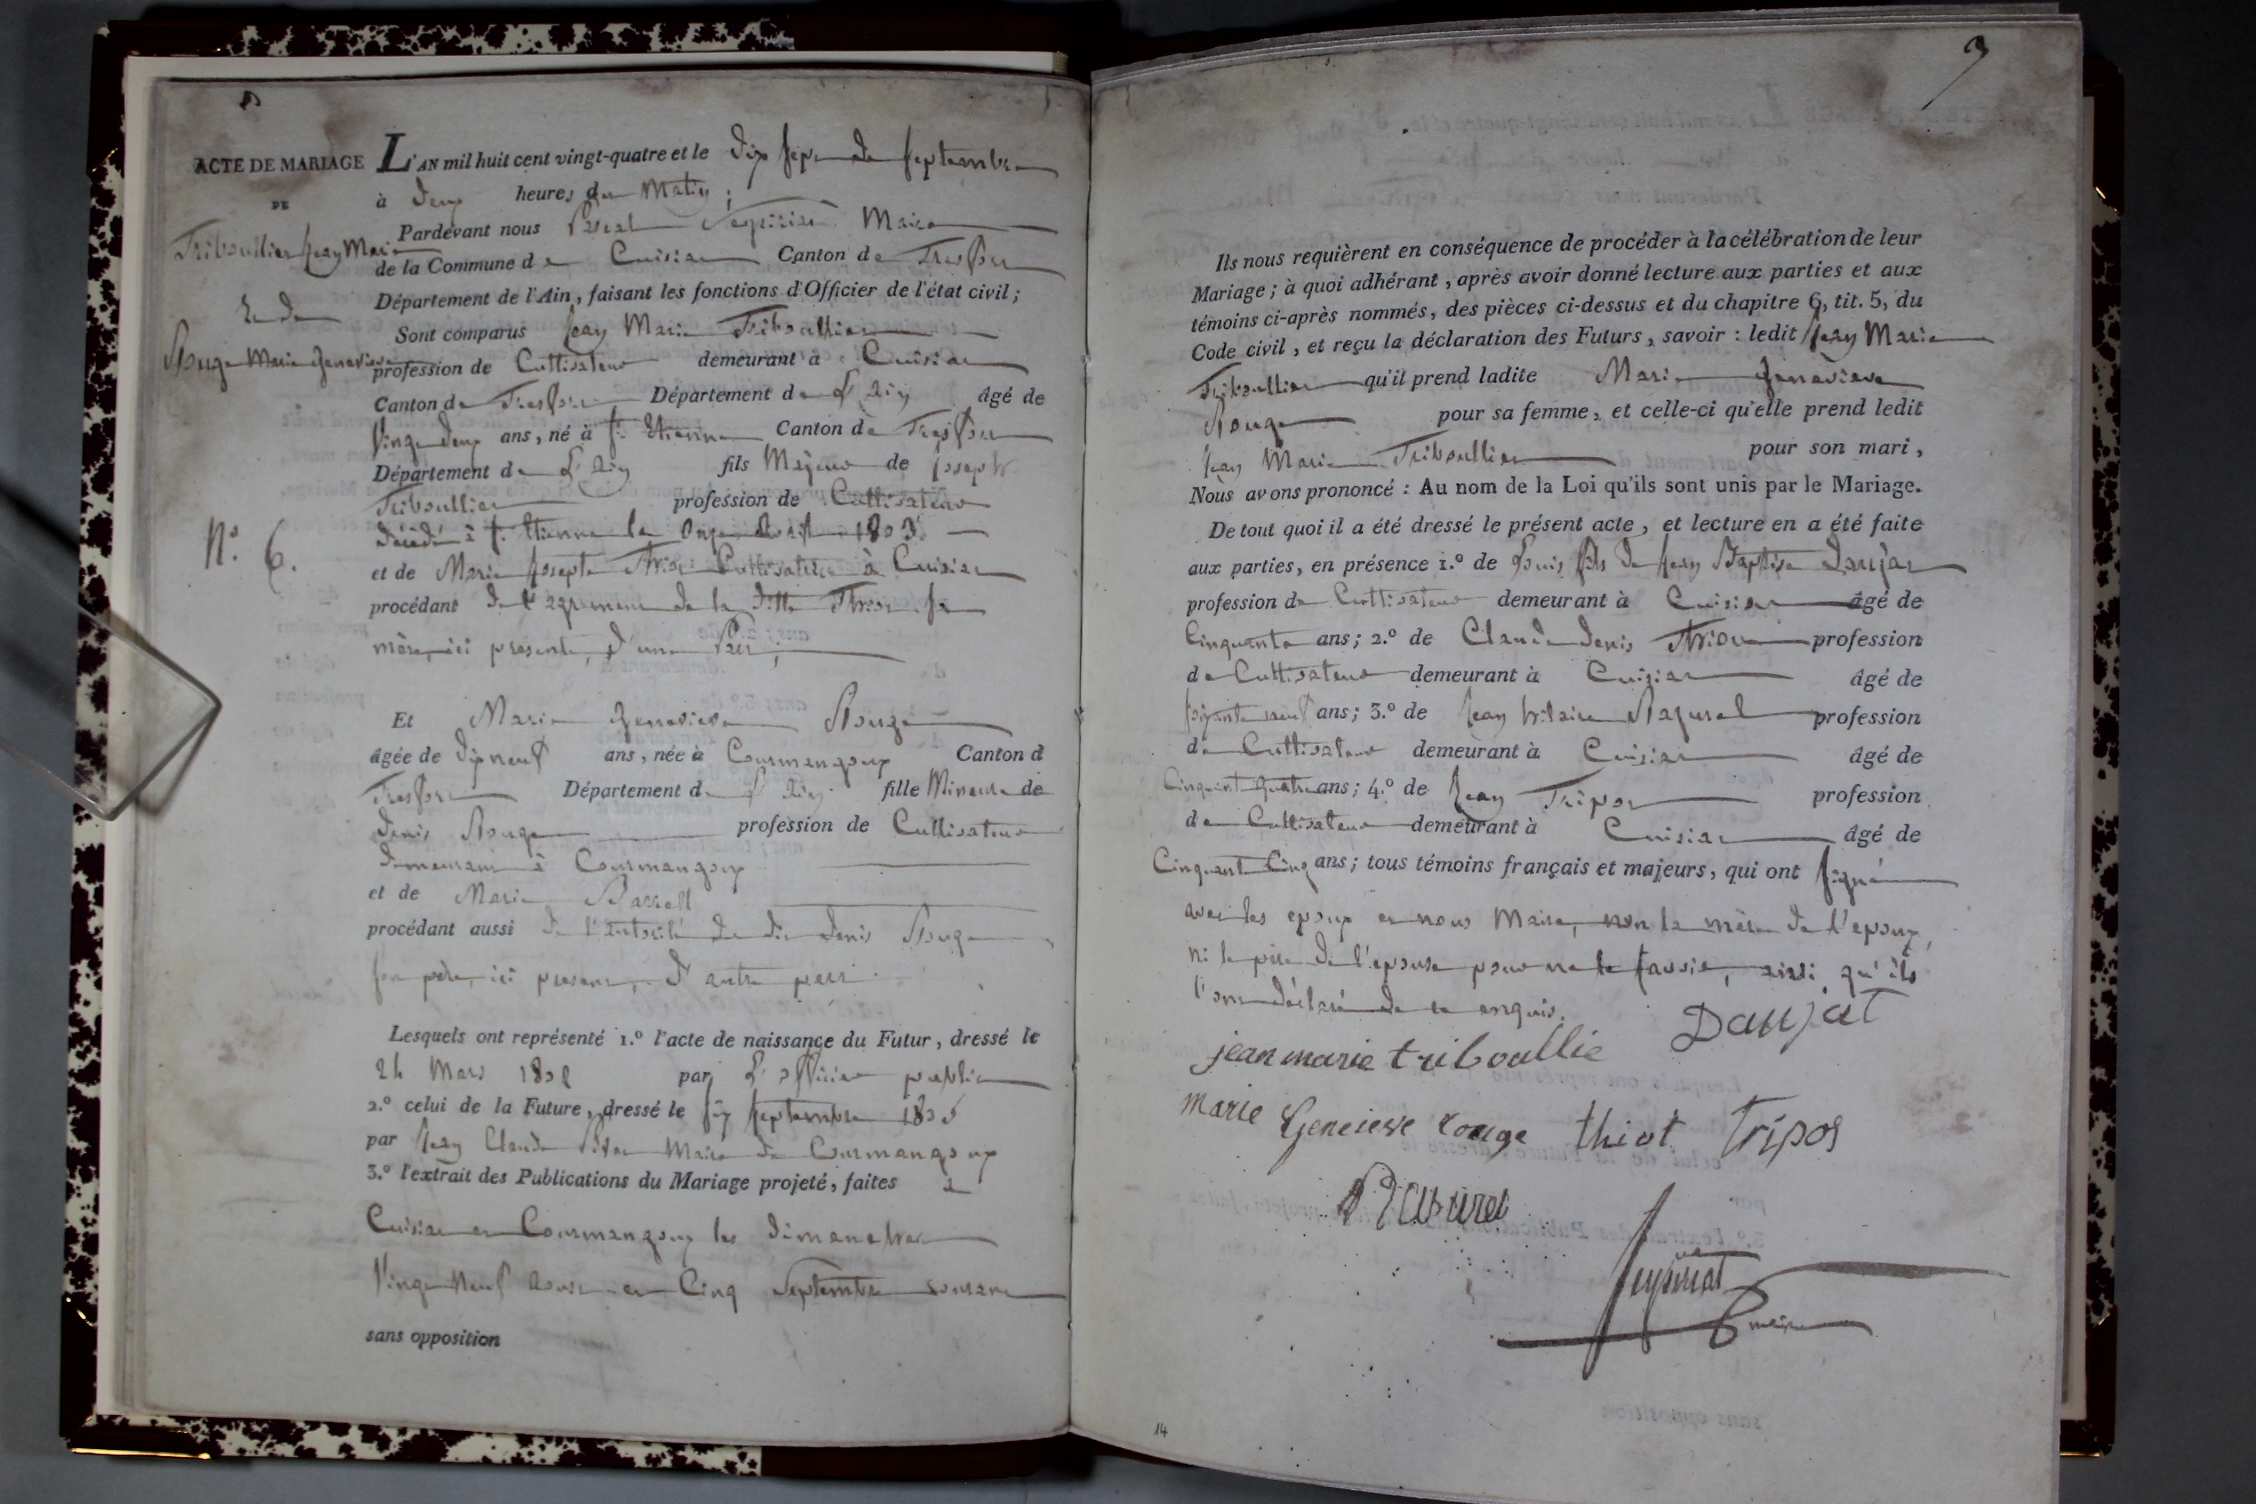 ACTE DE MARIAGE
DE
Triboullier Jean Marie
Et de
Rouge Marie Genevieve
N.° 6.
L'AN mil huit cent vingt-quatre et le dix sept de septembre
à deux heures du Matin ;
Pardevant nous Maire
de la Commune de Cuisiat Canton de Treffort
Département de l'Ain, faisant les fonctions d'Officier de l'état civil ;
Sont comparus Jean Marie Triboullier
profession de Cultivateur demeurant à Cuisiat
Canton de Treffort Département de L'Ain âgé de
vingt deux ans, né à St. Etienne Canton de Treffort
Département de L'Ain fils Majeur de Joseph
Triboullier profession de Cultivateur
décédé à St. Etienne le onze 1803
et de Marie Josepte Thiot Cultivatrice à Cuisiat
procédant de l'agrement de la ditte Thiot sa
mère, ici presente, d'une Part ;
Et Marie Genevieve Rouge
âgée de dix neuf ans, née à Courmangoux Canton d
Treffort Département de L'Ain fille Mineure de
denis Rouge profession de Cultivateur
demeurant à Courmangoux
et de Marie
procédant aussi de l'autorité du dit denis Rouge
son père, ici present, d'autre part.
Lesquels ont représenté 1.° l'acte de naissance du Futur, dressé le
24 Mars 1802 par L'officier public
2.° celui de la Future, dressé le six septembre 1805
par Jean Claude Maire de Courmangoux
3.° l'extrait des Publications du Mariage projeté, faites à
Cuisiat et Courmangoux les dimanches
vingt Neuf Aout et Cinq Septembre courant
sans opposition
9
Ils nous requièrent en conséquence de procéder à la célébration de leur
Mariage ; à quoi adhérant, après avoir donné lecture aux parties et aux
témoins ci-après nommés, des pièces ci-dessus et du chapitre 6, tit. 5, du
Code civil, et reçu la déclaration des Futurs, savoir : ledit Jean Marie
Triboullier qu'il prend ladite Marie Genevieve
Rouge pour sa femme, et celle-ci qu'elle prend ledit
Jean Marie Triboullier pour son mari,
Nous avons prononcé : Au nom de la Loi qu'ils sont unis par le Mariage.
De tout quoi il a été dressé le présent acte, et lecture en a été faite
aux parties, en présence 1.° de Louis fils de Jean Baptiste Daujat
profession de Cultivateur demeurant à Cuisiat âgé de
Cinquante ans ; 2.° de Claude denis Thiot profession
de Cultivateur demeurant à Cuisiat âgé de
soixante neuf ans ; 3.° de Jean hilaire profession
de Cultivateur demeurant à Cuisiat âgé de
Cinquant quatre ans ; 4.° de Jean Tripoz profession
de Cultivateur demeurant à Cuisiat âgé de
Cinquant Cinq ans ; tous témoins français et majeurs, qui ont signé
avec les epoux et nous Maire, non la mère de l'epoux,
ni le père de l'epouse pour ne le savoir, ainsi qu'ils
l'ont déclaré de ce enquis.
Daujat
jean marie triboullie
marie Genevieve rouge thiot Tripos
maire
14